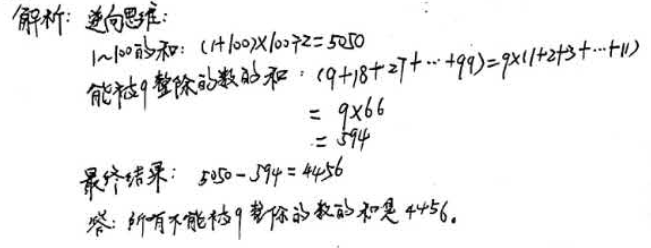 解析: 逆向思维:
1~100的和: (1+100)×100÷2=5050
能被9整除的数的和: (9+18+27+…+99)=9×(1+2+3+…+11)
= 9×66
= 594
最终结果: 5050-594=4456
答: 所有不能被9整除的数的和是4456。